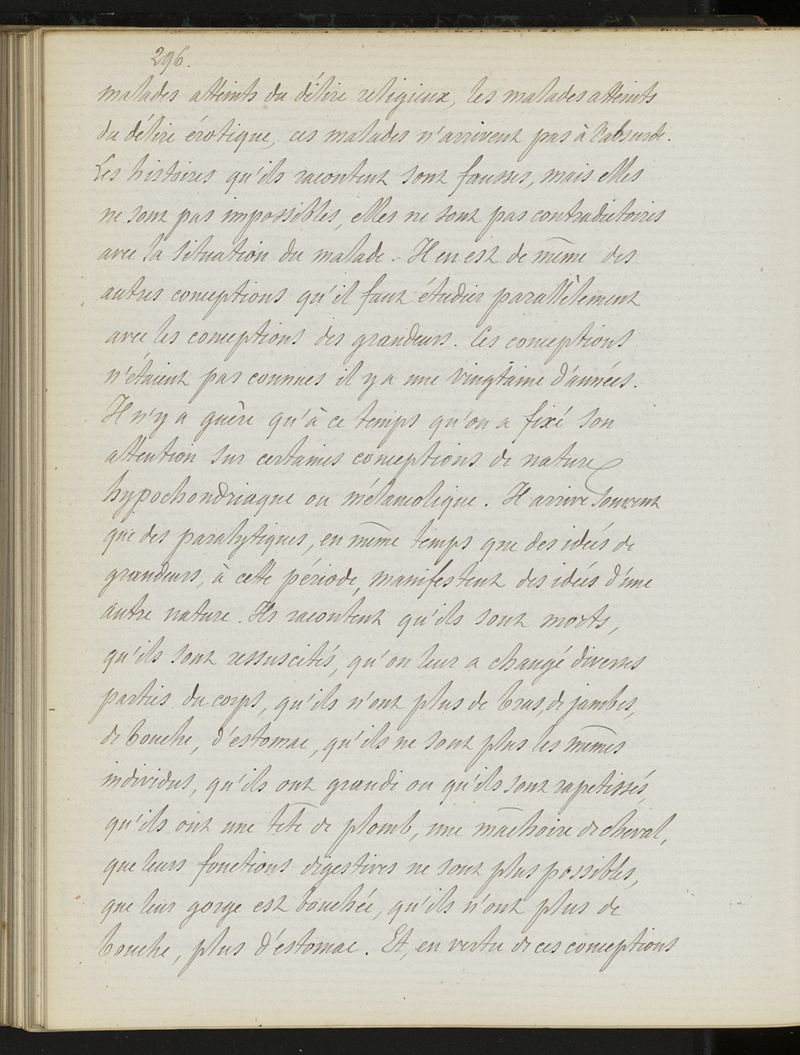 296.
malades atteints du délire religieux, les malades atteints
du délire érotique, ces malades n'arrivent pas à l'absurde.
Les histoires qu'ils racontent sont fausses, mais elles
ne sont pas impossibles, elles ne sont pas contradictoires
avec la situation du malade. Il en est de même des
autres conceptions qu'il faut étudier parallèlement
avec les conceptions des grandeurs. Ces conceptions
n'étaient pas connues il y a une vingtaine d'années.
Il n'y a guère qu'à ce temps qu'on a fixé son
attention sur certaines conceptions de nature
hypochondriaque ou mélancolique. Il arrive souvent
que des paralytiques, en même temps que des idées de
grandeurs, à cette période, manifestent des idées d'une
autre nature. Ils racontent qu'ils sont morts,
qu'ils sont ressuscités, qu'on leur a changé diverses
parties du corps, qu'ils n'ont plus de bras, de jambes,
de bouche, d'estomac, qu'ils ne sont plus les mêmes
individus, qu'ils ont grandi ou qu'ils sont rapetissés,
qu'ils ont une tête de plomb, une mâchoire de cheval,
que leurs fonctions digestives ne sont plus possibles,
que leur gorge est bouchée, qu'ils n'ont plus de
bouche, plus d'estomac. Et, en vertu de ces conceptions